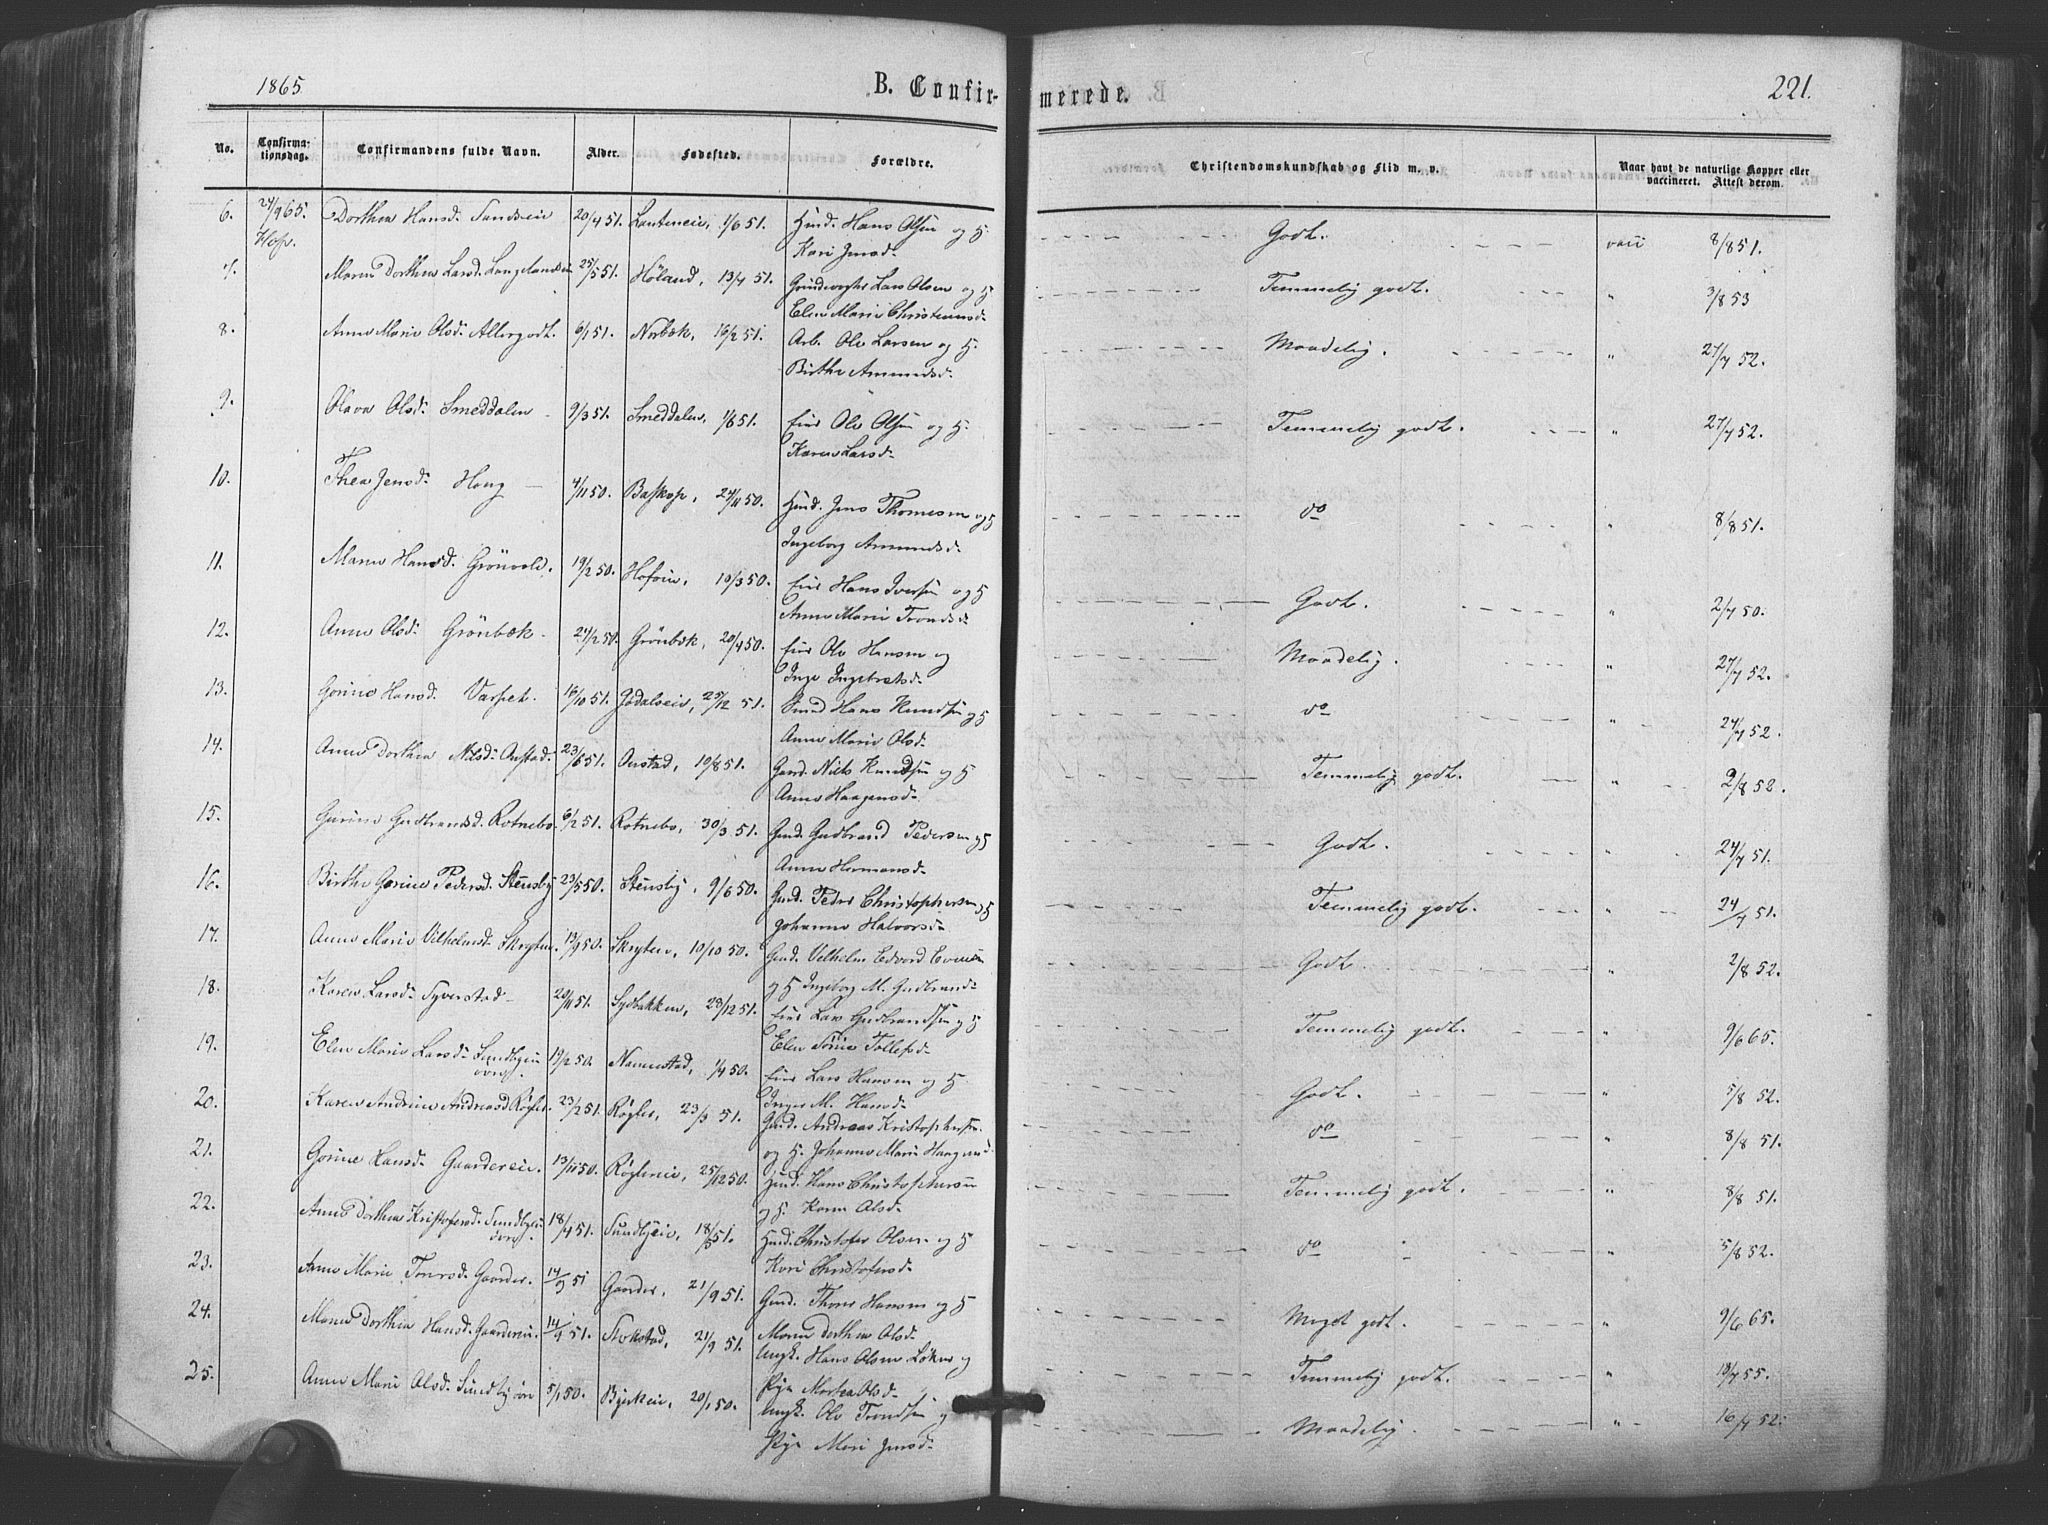 1865
B. Confirmerede.
221.
No. Confirmationsdag. Confirmandens fulde Navn. Alder. Fødested. Forældre. Christendomskundskab og Flid m. v. Naar havt de naturlige Kopper eller vaccineret. Attest derom.
6. 24/9 65. Dorthea Hansd. 20/4 51. 1/6 51. Huusm. Hans Olsen og H. Godt. vacc 8/8 51.
Kari Jensd.
7. Maren Dorthea Larsd. 25/5 51. Høland, 13/7 51. Lars Olsen og H Temmelig godt. " 3/8 53
Elen Marie Christensd.
8. Anne Marie Olsd. Allergodt. 6/1 51. Norbæk, 16/2 51. Arb. Ole Larsen og H. Maadelig. " 27/7 52.
Birthe Amundsd.
9. Olava Olsd. Smeddalen 9/3 51. Smeddalen, 1/6 51. Ole Olsen og H. Temmelig godt. " 27/7 52.
Karen Larsd.
10. Thea Jensd. Haug 4/11 50. 24/11 50. Jens Thomesen og H do " 8/8 51.
Ingeborg Amundsd.
11. Maren Hansd. Grönvold. 19/2 50. 10/3 50. Hans Iversen og H Godt. " 2/7 50.
Anne Marie Trondsd.
12. Anne Olsd. Grönbæk. 24/2 50. Grönbæk, 20/4 50. Ole Hansen og Maadelig. " 27/7 52.
Inge Ingebretsd.
13. Gorine Hansd. Varpet. 16/10 51. 25/12 51. Smed Hans Knudsen og H do " 24/7 52
Anne Marie Olsd.
14. Anne Dorthea Nilsd. Onstad. 23/6 51. Onstad, 10/8 51. Gaard. Niels Knudsen og H Temmelig godt. " 2/8 52.
Anne Haagensd.
15. Gurine Gudbrandsd. Rotnebo. 6/2 51. Rotnebo, 30/3 51. Gaard. Gudbrand Pedersen og H Godt. " 24/7 51.
Anne Hermansd.
16. Birthe Gorine Pedersd. Stensby 23/5 50. Stensby, 9/6 50. Gaard. Peder Christophersen og H Temmelig godt. " 24/7 51.
Johanne Halvorsd.
17. Anne Marie Vilhelmsd. Skryten. 13/9 50. Skryten, 10/10 50. Gaard. Vilhelm Edvard Evensen Godt. " 2/8 52.
og H Ingeborg M. Gudbrandsd.
18. Karen Larsd. Syverstad 20/11 51. Sydbakken, 28/12 51. Lars Gudbrandsen og H Temmelig godt. " 9/6 65.
Elen Sörine Tollefsd.
19. Elen Marie Larsd. 19/2 50. Nannestad, 1/4 50. Lars Hansen og H. Godt. " 5/8 52.
Inger M. Hansd.
20. Karen Andrine Andreasd. Røgler. 23/2 51. Røgler, 23/3 51. Gaard. Andreas Kristophersen do " 8/8 51.
og H. Johanne Marie
21. Gorine Hansd. Gaardereie. 13/11 50. Røglereie, 25/12 50. Huusm. Hans Christophersen Temmelig godt. " 8/8 51.
og H. Karen Olsd.
22. Anne Dorthea Kristofersd. 18/4 51. Sundbyeie, 18/5 51. Huusm. Christofer Olsen og H do " 5/8 52.
Kari Christofersd.
23. Anne Marie Toresd. Gaarder. 14/9 51 Gaarder, 21/9 51. Gaard. Thore Hansen og H Meget godt. " 9/6 65.
Maren Dorthea Olsd.
24. Maren Dorthea Hansd. Gaardereie. 51. Stokstad, 21/9 51. Ungk. Hans Olsen Løken og Temmelig godt. " 18/7 55.
Pige Marthea Olsd.
25. Anne Marie Olsd. 5/1 50. Bjerkeie, 20/1 50. Ungk. Ole Trondsen og Maadelig. " 16/7 52.
Pige Mari Jensd.